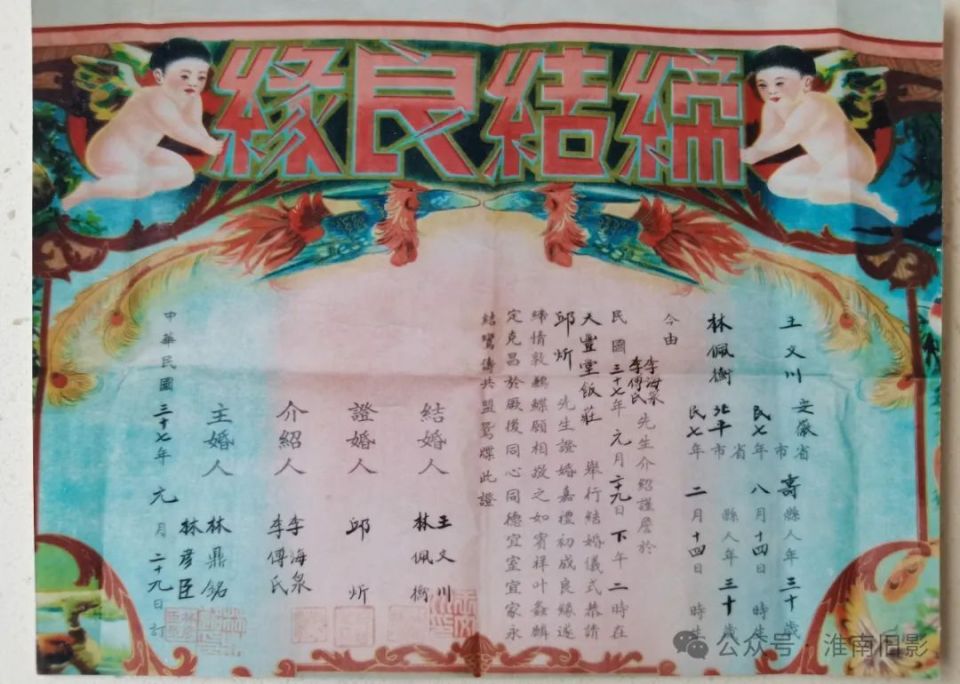 締結良緣
王文川 安徽省市壽縣人年三十歲
民七年八月十四日 時生
林佩衡 北平省市縣人年三十歲
民七年二月十四日 時生
今由李海泉李傅氏先生介紹謹詹於
民國三十七年元月二十九日下午二時在
天豐堂飯莊 舉行結婚儀式恭請
邱炘 先生證婚嘉禮初成良緣遂
締情敦鶼鰈願相敬之如賓祥叶螽麟
定克昌於厥後同心同德宜室宜家永
結鸞儔共盟鴛牒此證
結婚人 王文川 林佩衡
證婚人 邱炘
介紹人 李海泉 李傅氏
主婚人 林鼎銘 林彥臣
中華民國三十七年元月二十九日訂
公众号·淮南旧影